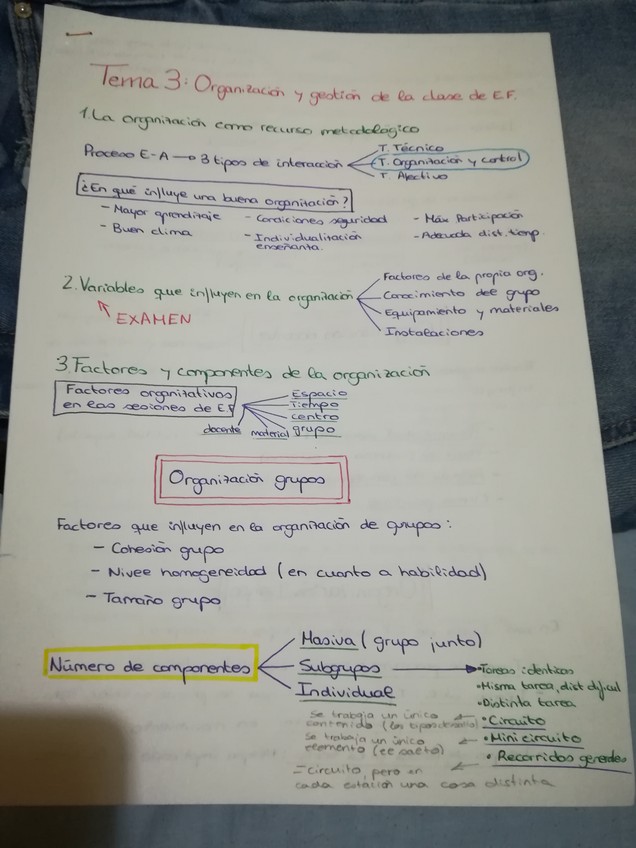 Tema 3: Organización y gestión de la clase de E.F.
1. La organización como recurso metodológico
Proceso E-A → 3 tipos de interacción
T. Técnico
T. Organización y control
T. Afectivo
¿En qué influye una buena organización?
- Mayor aprendizaje
- Buen clima
- Condiciones seguridad
- Individualización enseñanza
- Máx Participación
- Adecuada dist. tiemp.
2. Variables que influyen en la organización
EXAMEN
Factores de la propia org.
Conocimiento del grupo
Equipamiento y materiales
Instalaciones
3. Factores y componentes de la organización
Factores organizativos
en las sesiones de E.F
Espacio
Tiempo
centro
grupo
material
docente
Organización grupos
Factores que influyen en la organización de grupos:
- Cohesión grupo
- Nivel homogeneidad (en cuanto a habilidad)
- Tamaño grupo
Número de componentes
Masiva (grupo junto)
Subgrupos
Individual
• Tareas identicas
• Misma tarea, dist dificul
• Distinta tarea
• Circuito
Se trabaja un único
contenido (los tipos de salto)
• Mini circuito
Se trabaja un único
elemento (el salto)
• Recorridos generales
= circuito, pero en
cada estación una cosa distinta